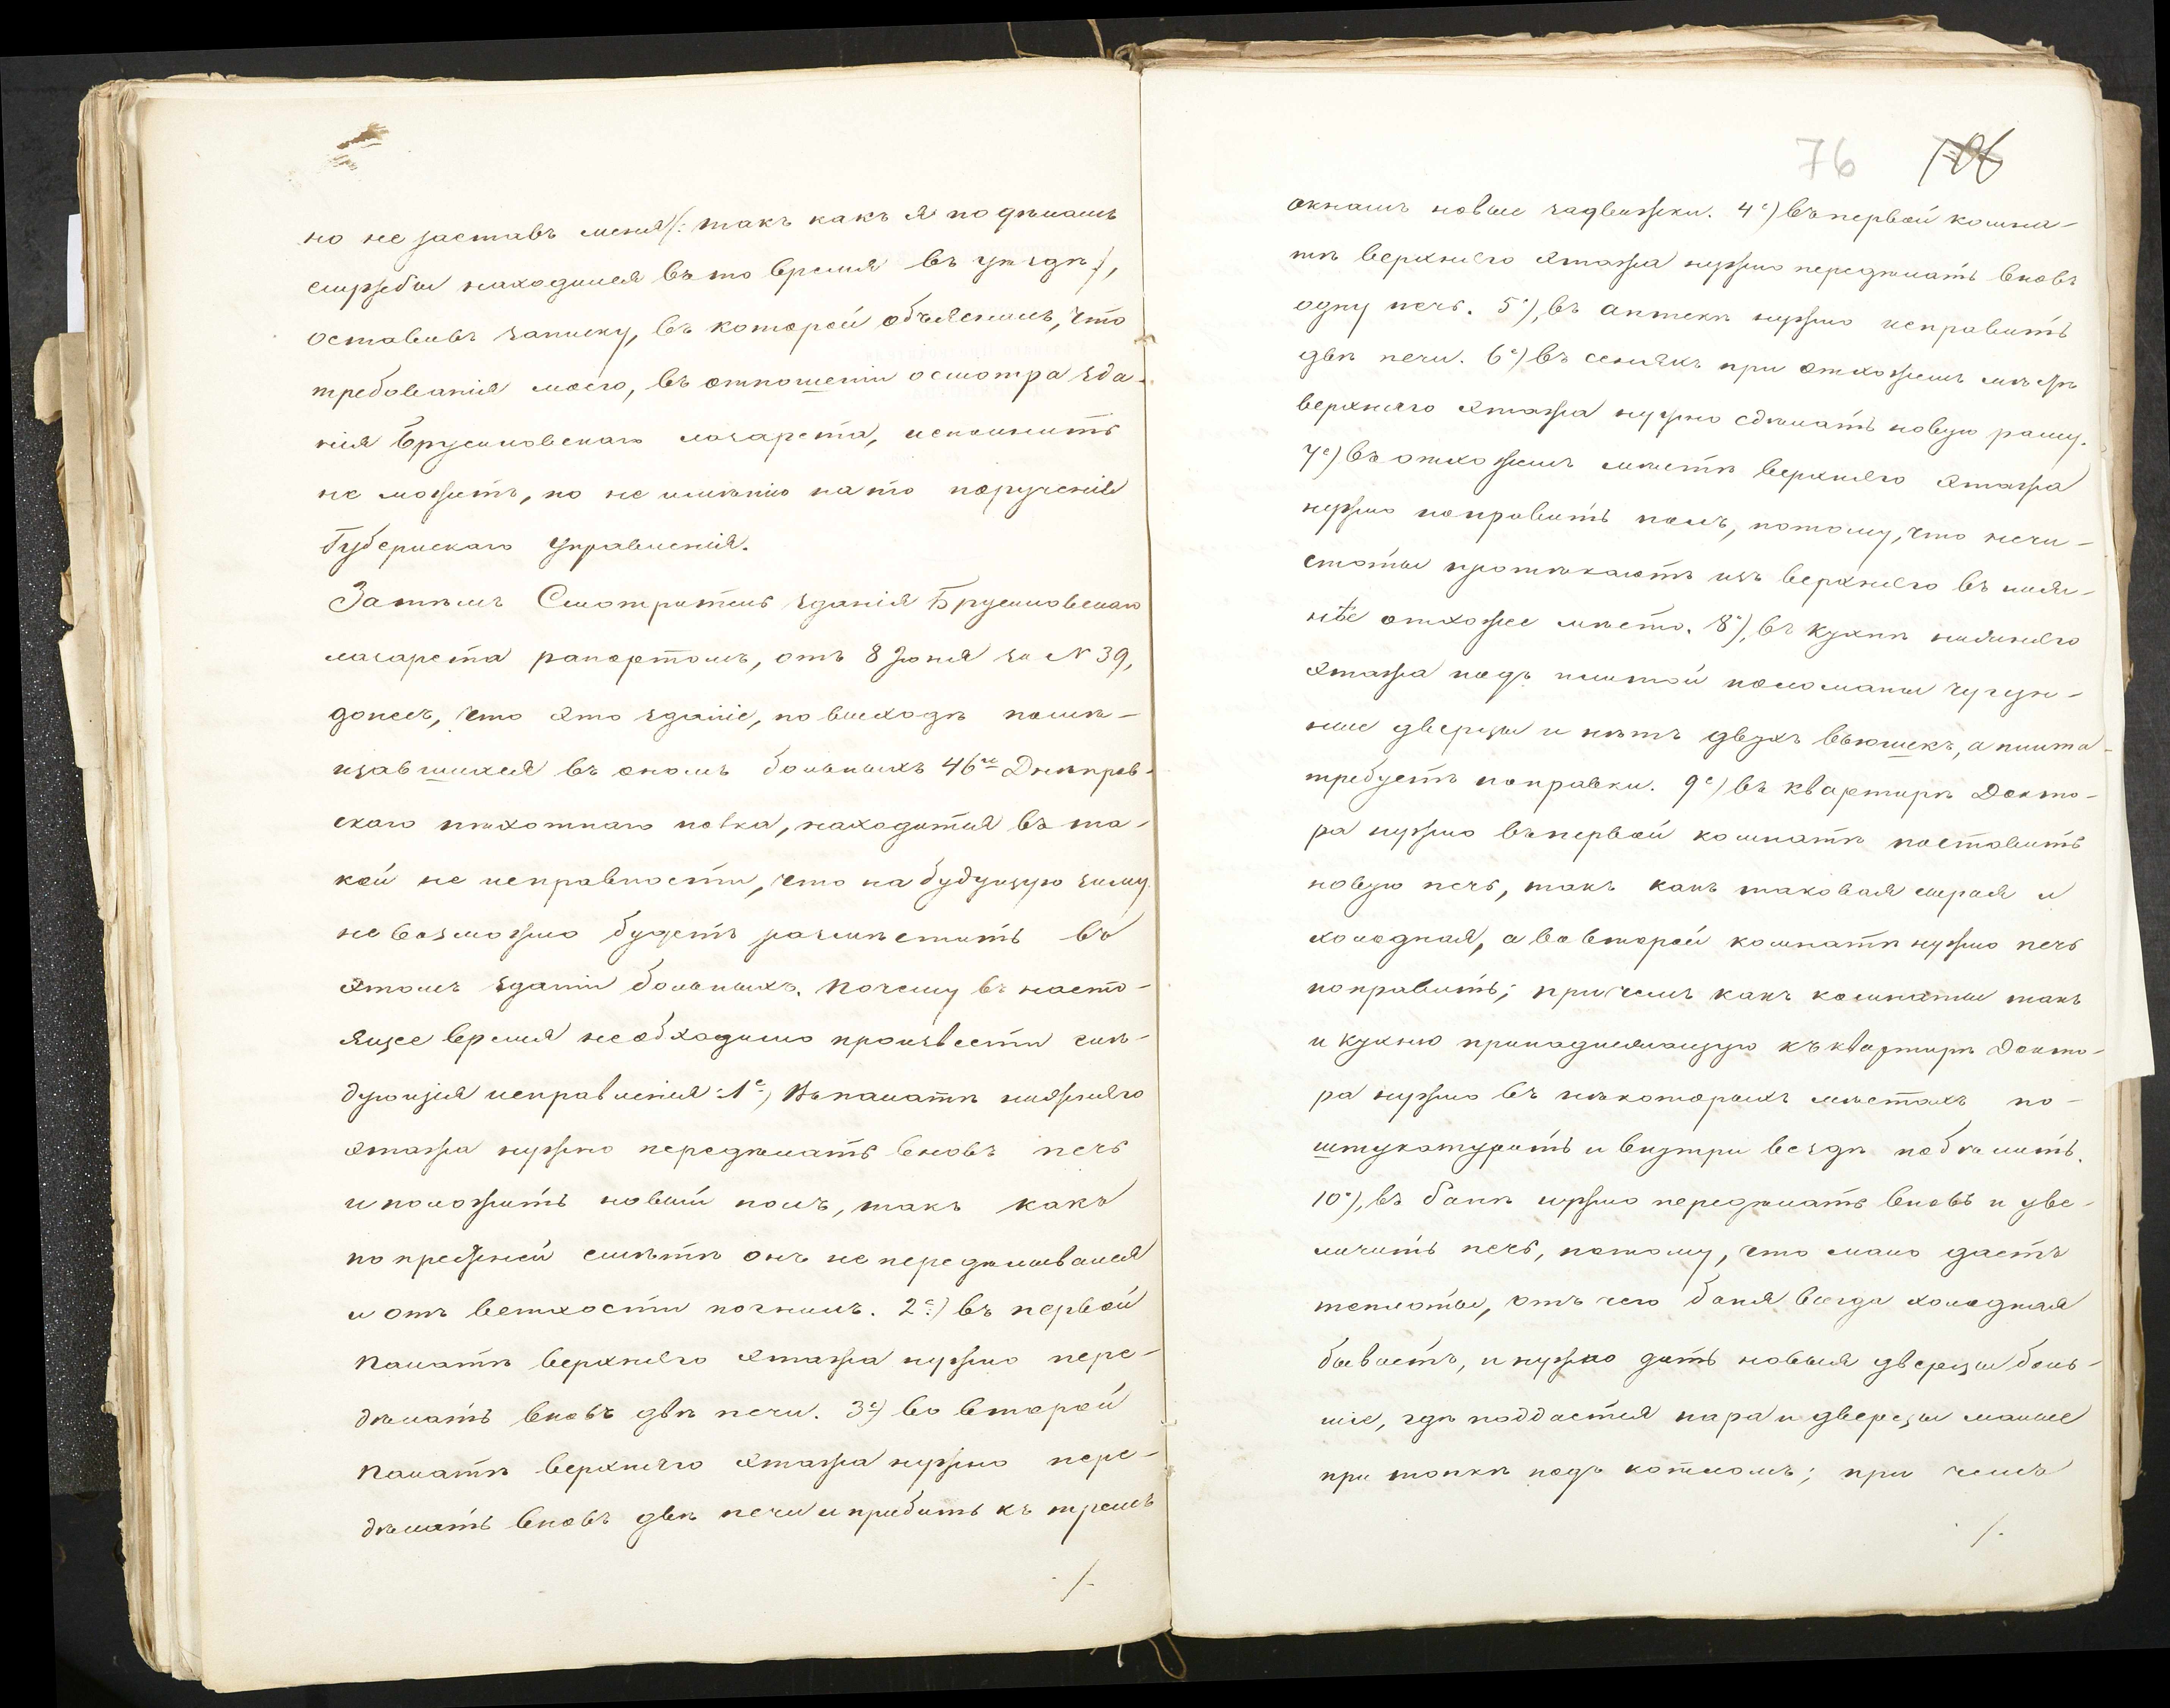 но не заставъ меня /: такъ какъ я по дѣламъ
службы находился въ то время въ уѣздѣ :/,
оставивъ записку, въ которой объяснилъ, что
требованія моего, въ отношеніи осмотра зда-
нія Брусиловскаго лазарета, исполнить
не можетъ, по не имѣнію на то порученія
Губернскаго Управленія.
Затѣмъ Смотритель зданія Брусиловскаго
лазарета рапортомъ, отъ 8 Іюня за № 39,
донесъ, что это зданіе, по выходѣ помѣ-
щавшихся въ ономъ больныхъ 46го Днѣпров-
скаго пѣхотнаго полка, находится въ та-
кой не исправности, что на будущую зиму
не возможно будетъ размѣстить въ
этомъ зданіи больныхъ. Почему въ насто-
ящее время необходимо произвести слѣ-
дующія исправленія: 1е) Въ палатѣ нижняго
этажа нужно передѣлать вновь печь
и положить новый полъ, такъ какъ
по прежней смѣтѣ онъ не передѣлывался
и отъ ветхости погнилъ. 2е) въ первой
палатѣ верхняго этажа нужно пере-
дѣлать вновь двѣ печи. 3е) во второй
палатѣ верхняго этажа нужно пере-
дѣлать вновь двѣ печи и прибить къ тремъ
./.
76 106
окнамъ новые задвижки. 4е) въ первой комна-
тѣ верхняго этажа нужно передѣлать вновь
одну печь. 5е), въ аптекѣ нужно исправить
двѣ печи. 6е) въ сеняхъ при отхожемъ мѣстѣ
верхняго этажа нужно сдѣлать новую раму.
7е) въ отхожемъ мѣстѣ верхняго этажа
нужно поправить полъ, потому, что нечи-
стоты протѣкаютъ изъ верхняго въ ниж-
нѣе отхожее мѣсто. 8е), въ кухнѣ нижняго
этажа подъ плитой поломаны чугун-
ные дверцы и нѣтъ двухъ вьюшекъ, а плита
требуетъ поправки. 9е) въ квартирѣ Докто-
ра нужно въ первой комнатѣ поставить
новую печь, такъ какъ таковая сырая и
холодная, а во второй комнатѣ нужно печь
поправить; причемъ какъ комнаты такъ
и кухню принадлежащую къ квартирѣ Докто-
ра нужно въ нѣкоторыхъ мѣстахъ по-
штукатурить и внутри вездѣ побѣлить.
10е), въ банѣ нужно передѣлать вновь и уве-
личить печь, потому, что мало даетъ
теплоты, отъ чего баня всегда холодная
бываетъ, и нужно дать новыя дверцы боль-
шіе, гдѣ поддается пара и дверцы малые
при топкѣ подъ котломъ; при чемъ
/.